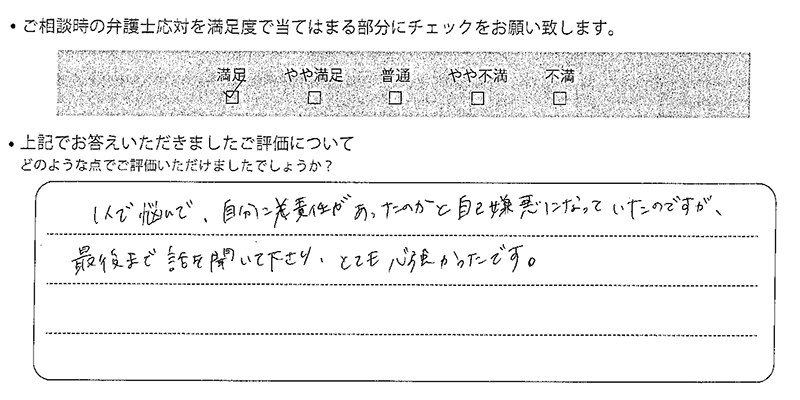 ・ご相談時の弁護士応対を満足度で当てはまる部分にチェックをお願い致します。
満足 やや満足 普通 やや不満 不満
☑ □ □ □ □
・上記でお答えいただきましたご評価について
どのような点でご評価いただけましたでしょうか？
1人で悩んで、自分に責任があったのかと自己嫌悪になっていたのですが、
最後まで話を聞いて下さり、とても心強かったです。